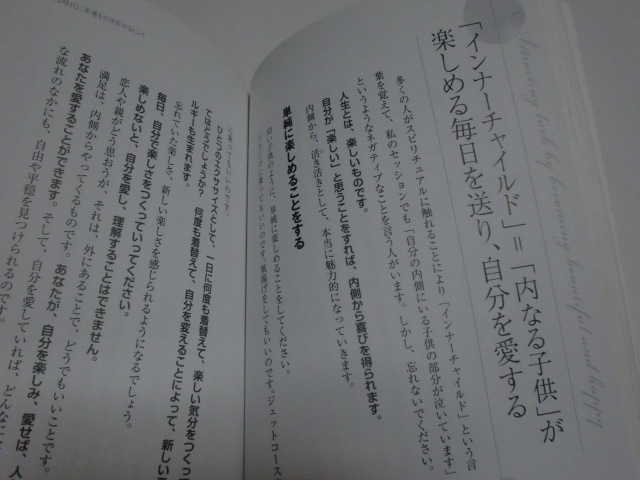 「インナーチャイルド」＝「内なる子供」が
楽しめる毎日を送り、自分を愛する
多くの人がスピリチュアルに触れることにより「インナーチャイルド」という言
葉を覚えて、私のセッションでも「自分の内側にいる子供の部分が泣いています」
というようなネガティブなことを言う人がいます。しかし、忘れないでください。
人生とは、楽しいものです。
自分が「楽しい」と思うことをすれば、内側から喜びを得られます。
内側から、活き活きとして、本当に魅力的になっていきます。
単純に楽しめることをする
子供のように、単純に楽しめることをしてください。
てもいいのです。凧揚げをしてもいいのです。ジェットコース
ってもいいのです。
ひとつのエクササイズとして、一日に何度も着替えて、楽しい気分をつくって
ではどうでしょうか? 何度も着替えて、自分を変えることによって、新しい
ルギーも生まれます。
忘れていた楽しさ、新しい楽しさを感じられるようになるでしょう。
毎日、自分で楽しさをつくっていってください。
楽しめないと、自分を愛し、理解することはできません。
恋人や親がどう思おうが、それは、外にあることで、どうでもいいことです。
満足は、内側からやってくるものです。あなたが、自分を楽しみ、愛せば、人
あなたを愛することができます。そして、自分を愛していれば、どんな
な流れのなかにも、自由や平穏を見つけられるのです。
by becoming beautiful and happy